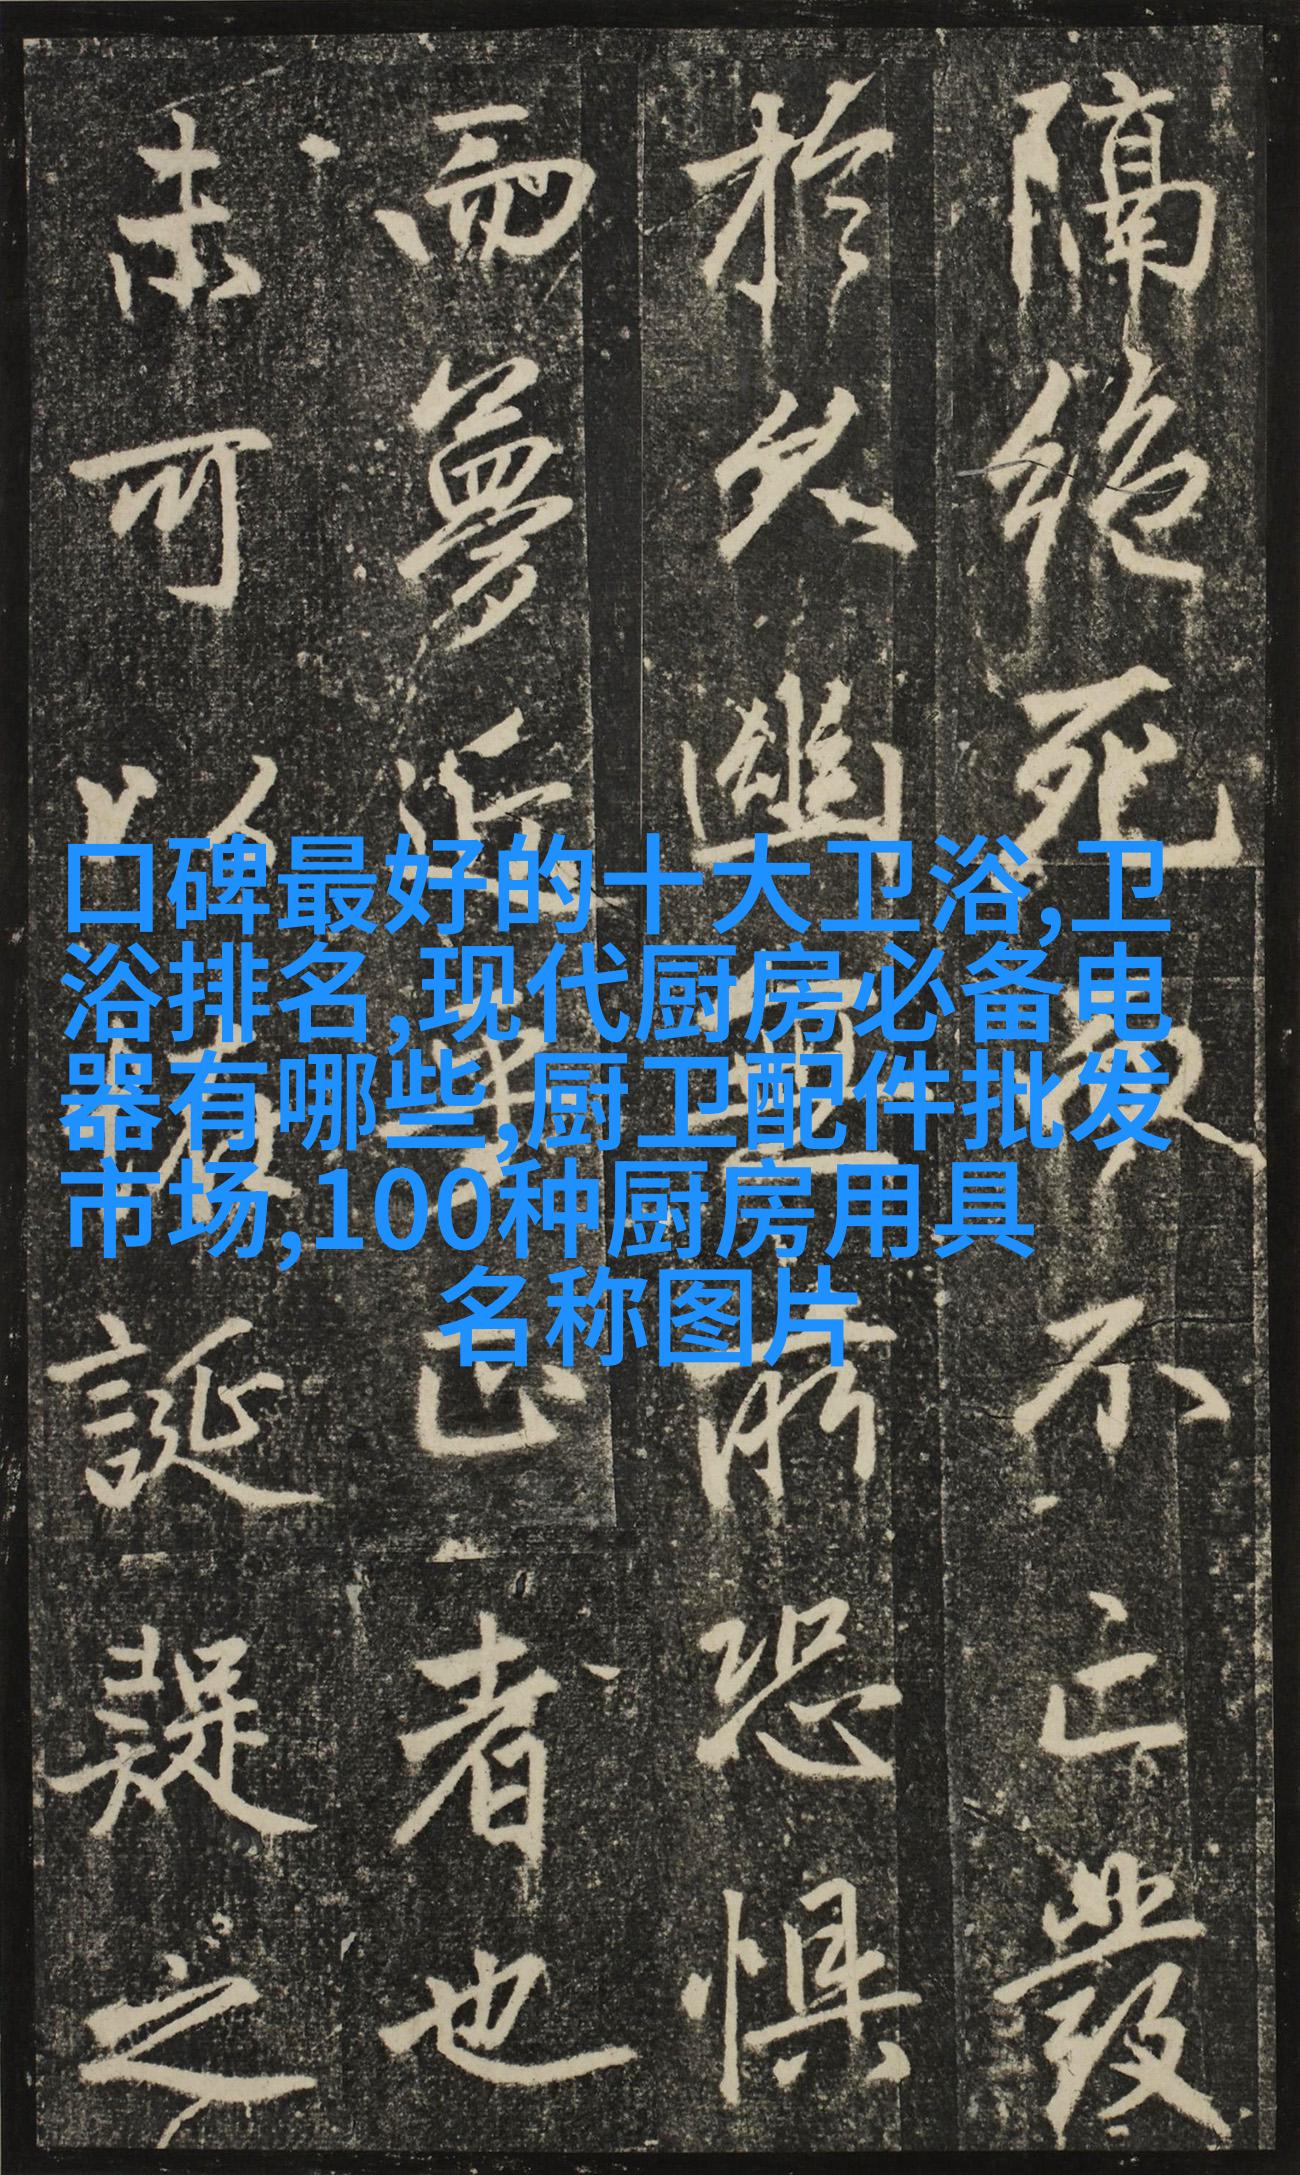 隔絶死不亡發
於久幽所恐惧
而夢近正者也
未可以誕疑之
口碑最好的十大卫浴,卫
浴排名,现代厨房必备电
器有哪些,厨卫配件批发
市场,100种厨房用具
名称图片